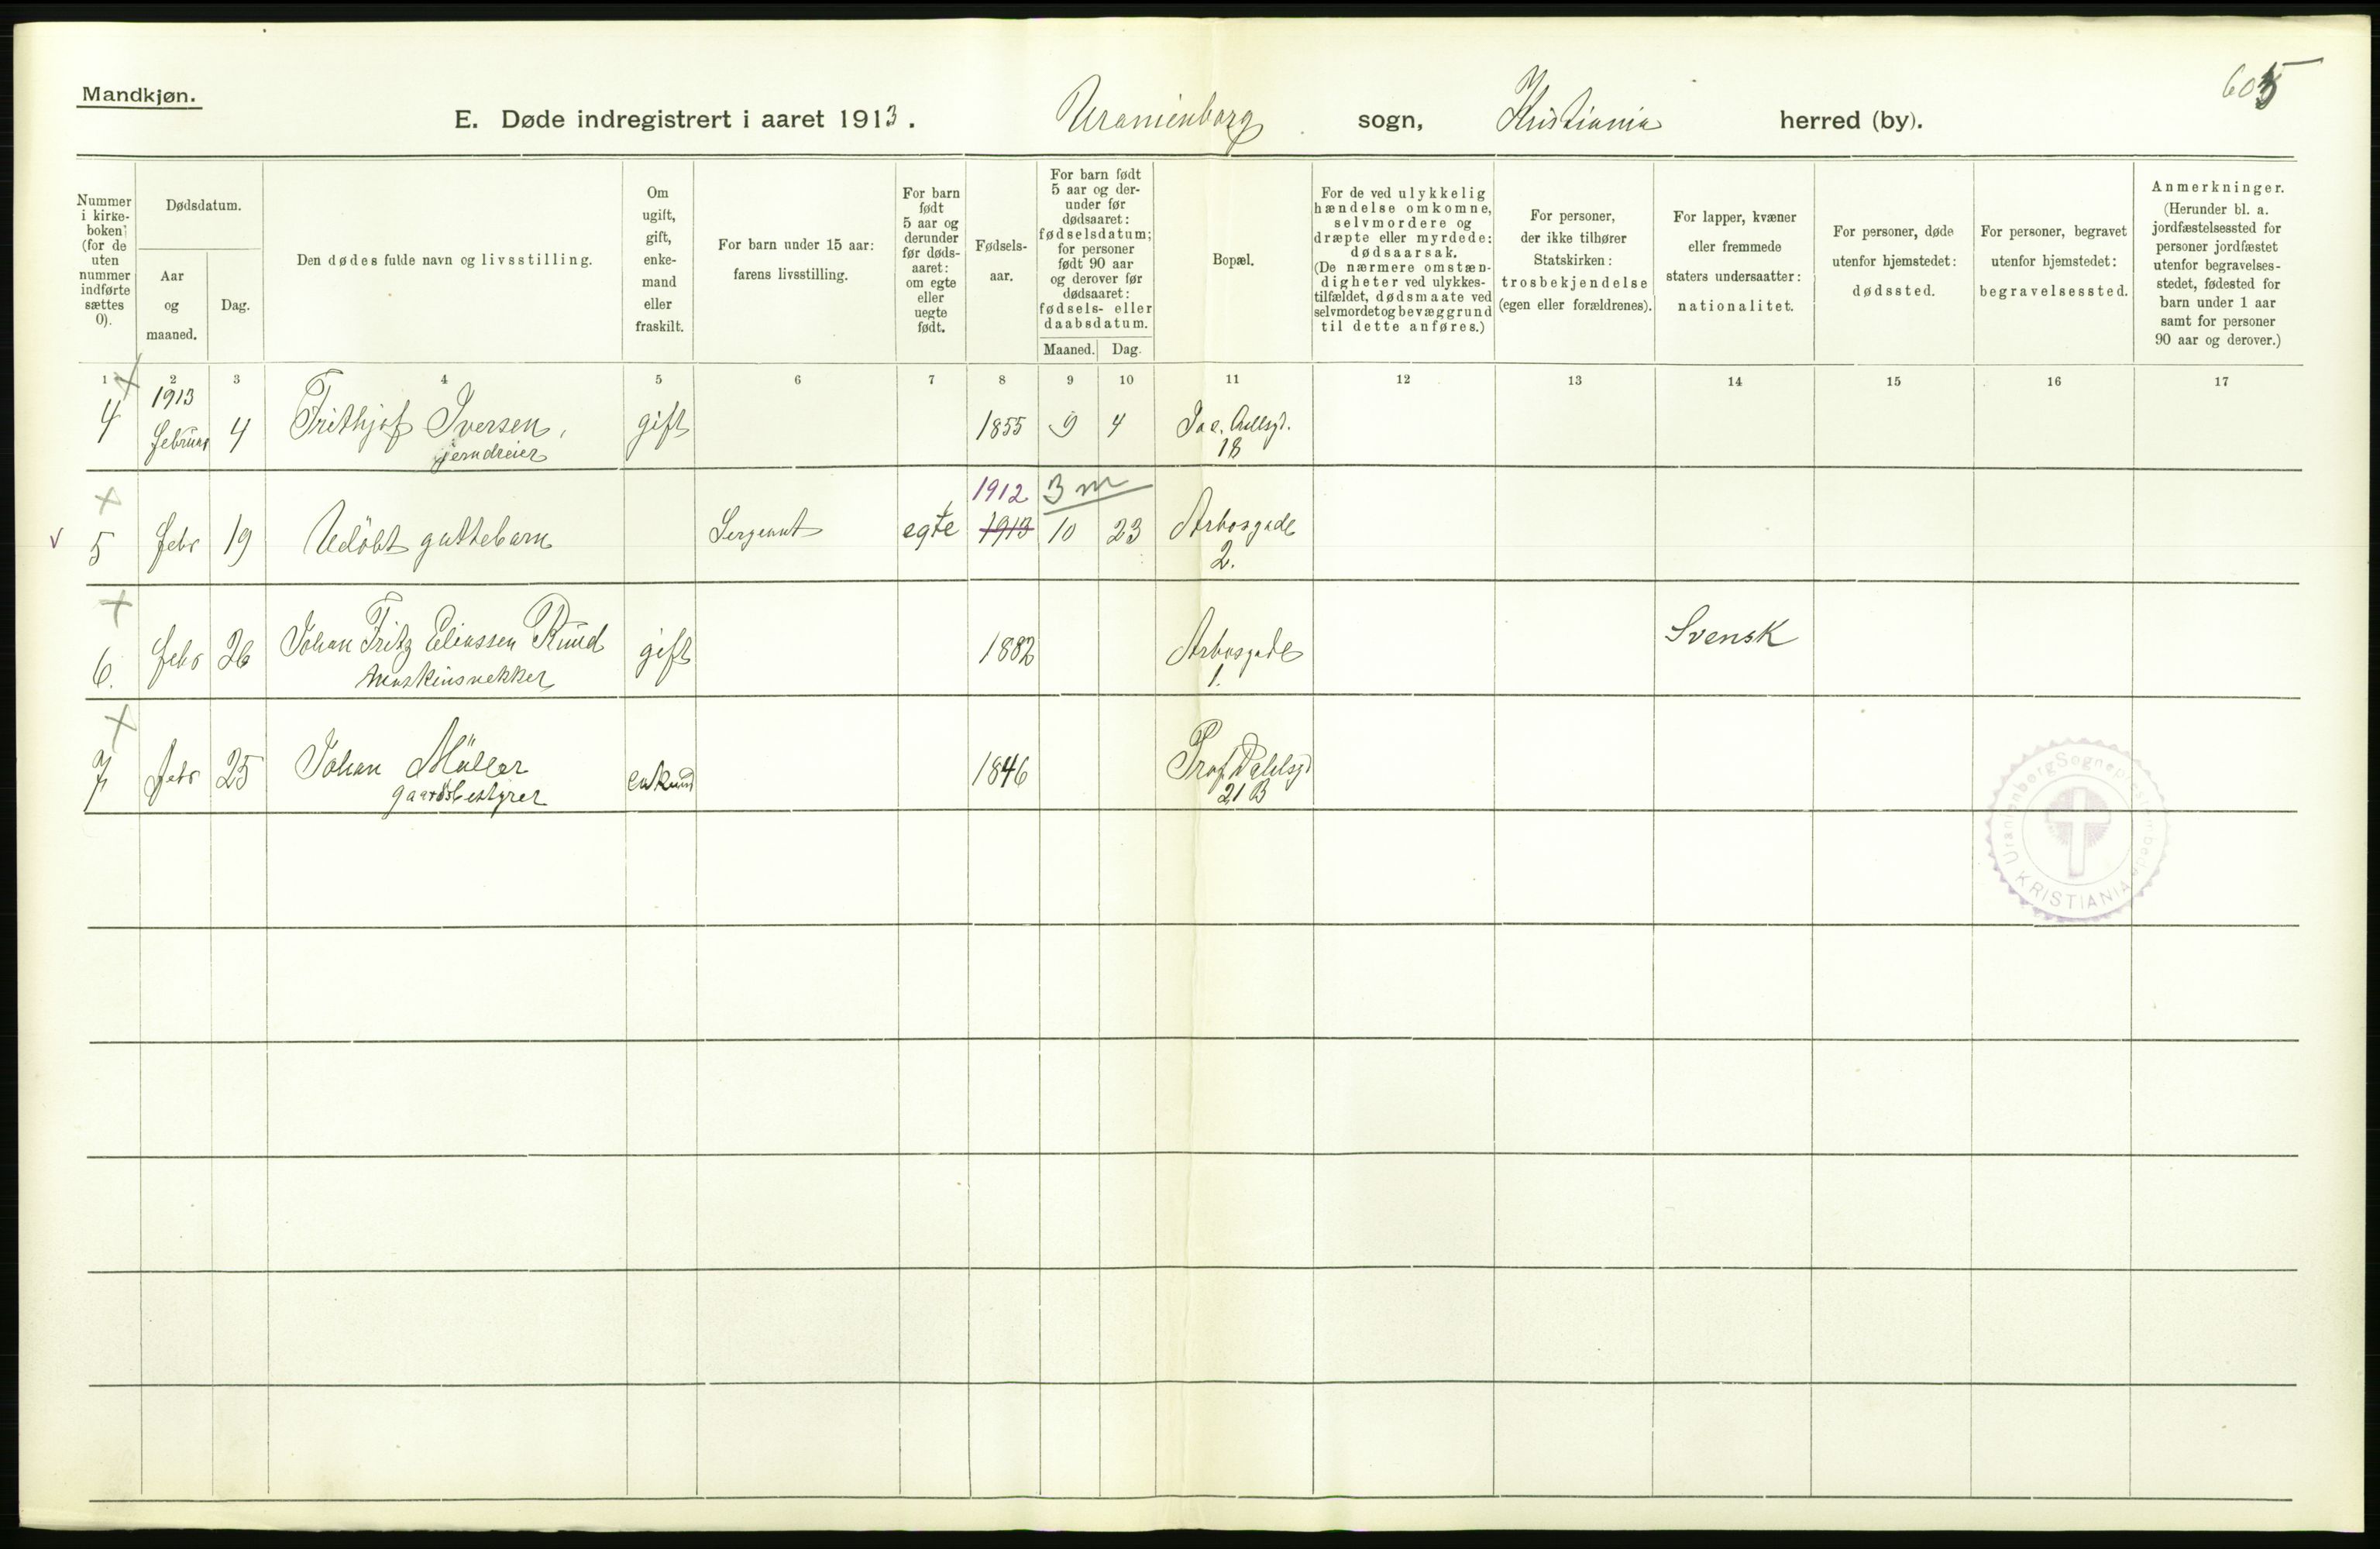 Mandkjøn.
605
E. Døde indregistrert i aaret 1913. Uranienborg sogn, Kristiania herred (by).
Nummer i kirke-boken (for de uten nummer indførte sættes 0).
Dødsdatum.
Aar og maaned.
Dag.
Den dødes fulde navn og livsstilling.
Om ugift, gift, enke-mand eller fraskilt.
For barn under 15 aar: farens livsstilling.
For barn født 5 aar og derunder før døds-aaret: om egte eller uegte født.
Fødsels-aar.
For barn født 5 aar og der-under før dødsaaret: fødselsdatum; for personer født 90 aar og derover før dødsaaret: fødsels- eller daabsdatum.
Maaned.
Dag.
Bopæl.
For de ved ulykkelig hændelse omkomne, selvmordere og dræpte eller myrdede: dødsaarsak. (De nærmere omstæn-digheter ved ulykkes-tilfældet, dødsmaate ved selvmordet og bevæggrund til dette anføres.)
For personer, der ikke tilhører Statskirken: trosbekjendelse (egen eller forældrenes).
For lapper, kvæner eller fremmede staters undersaatter: nationalitet.
For personer, døde utenfor hjemstedet: dødssted.
For personer, begravet utenfor hjemstedet: begravelsessted.
Anmerkninger. (Herunder bl. a. jordfæstelsessted for personer jordfæstet utenfor begravelses-stedet, fødested for barn under 1 aar samt for personer 90 aar og derover.)
1 2 3 4 5 6 7 8 9 10 11 12 13 14 15 16 17
1913
4 Februar 4 Frithjof Iversen, gift 1855 9 4 Jac. Aallsgd.
jerndreier 18
1912 3 m
5 Febr 19 Udöbt guttebarn Sergeant egte 1913 10 23 Arbosgade
2.
6. Febr 26 Johan Fritz Eliassen Ruud gift 1882 Arbosgade Svensk
Maskinsnekker 1.
7 Febr 25 Johan Müller enkem 1846 Prof Dahlsgd
gaardsbestyrer 21 B
Uranienborg Sogneprestembede
KRISTIANIA